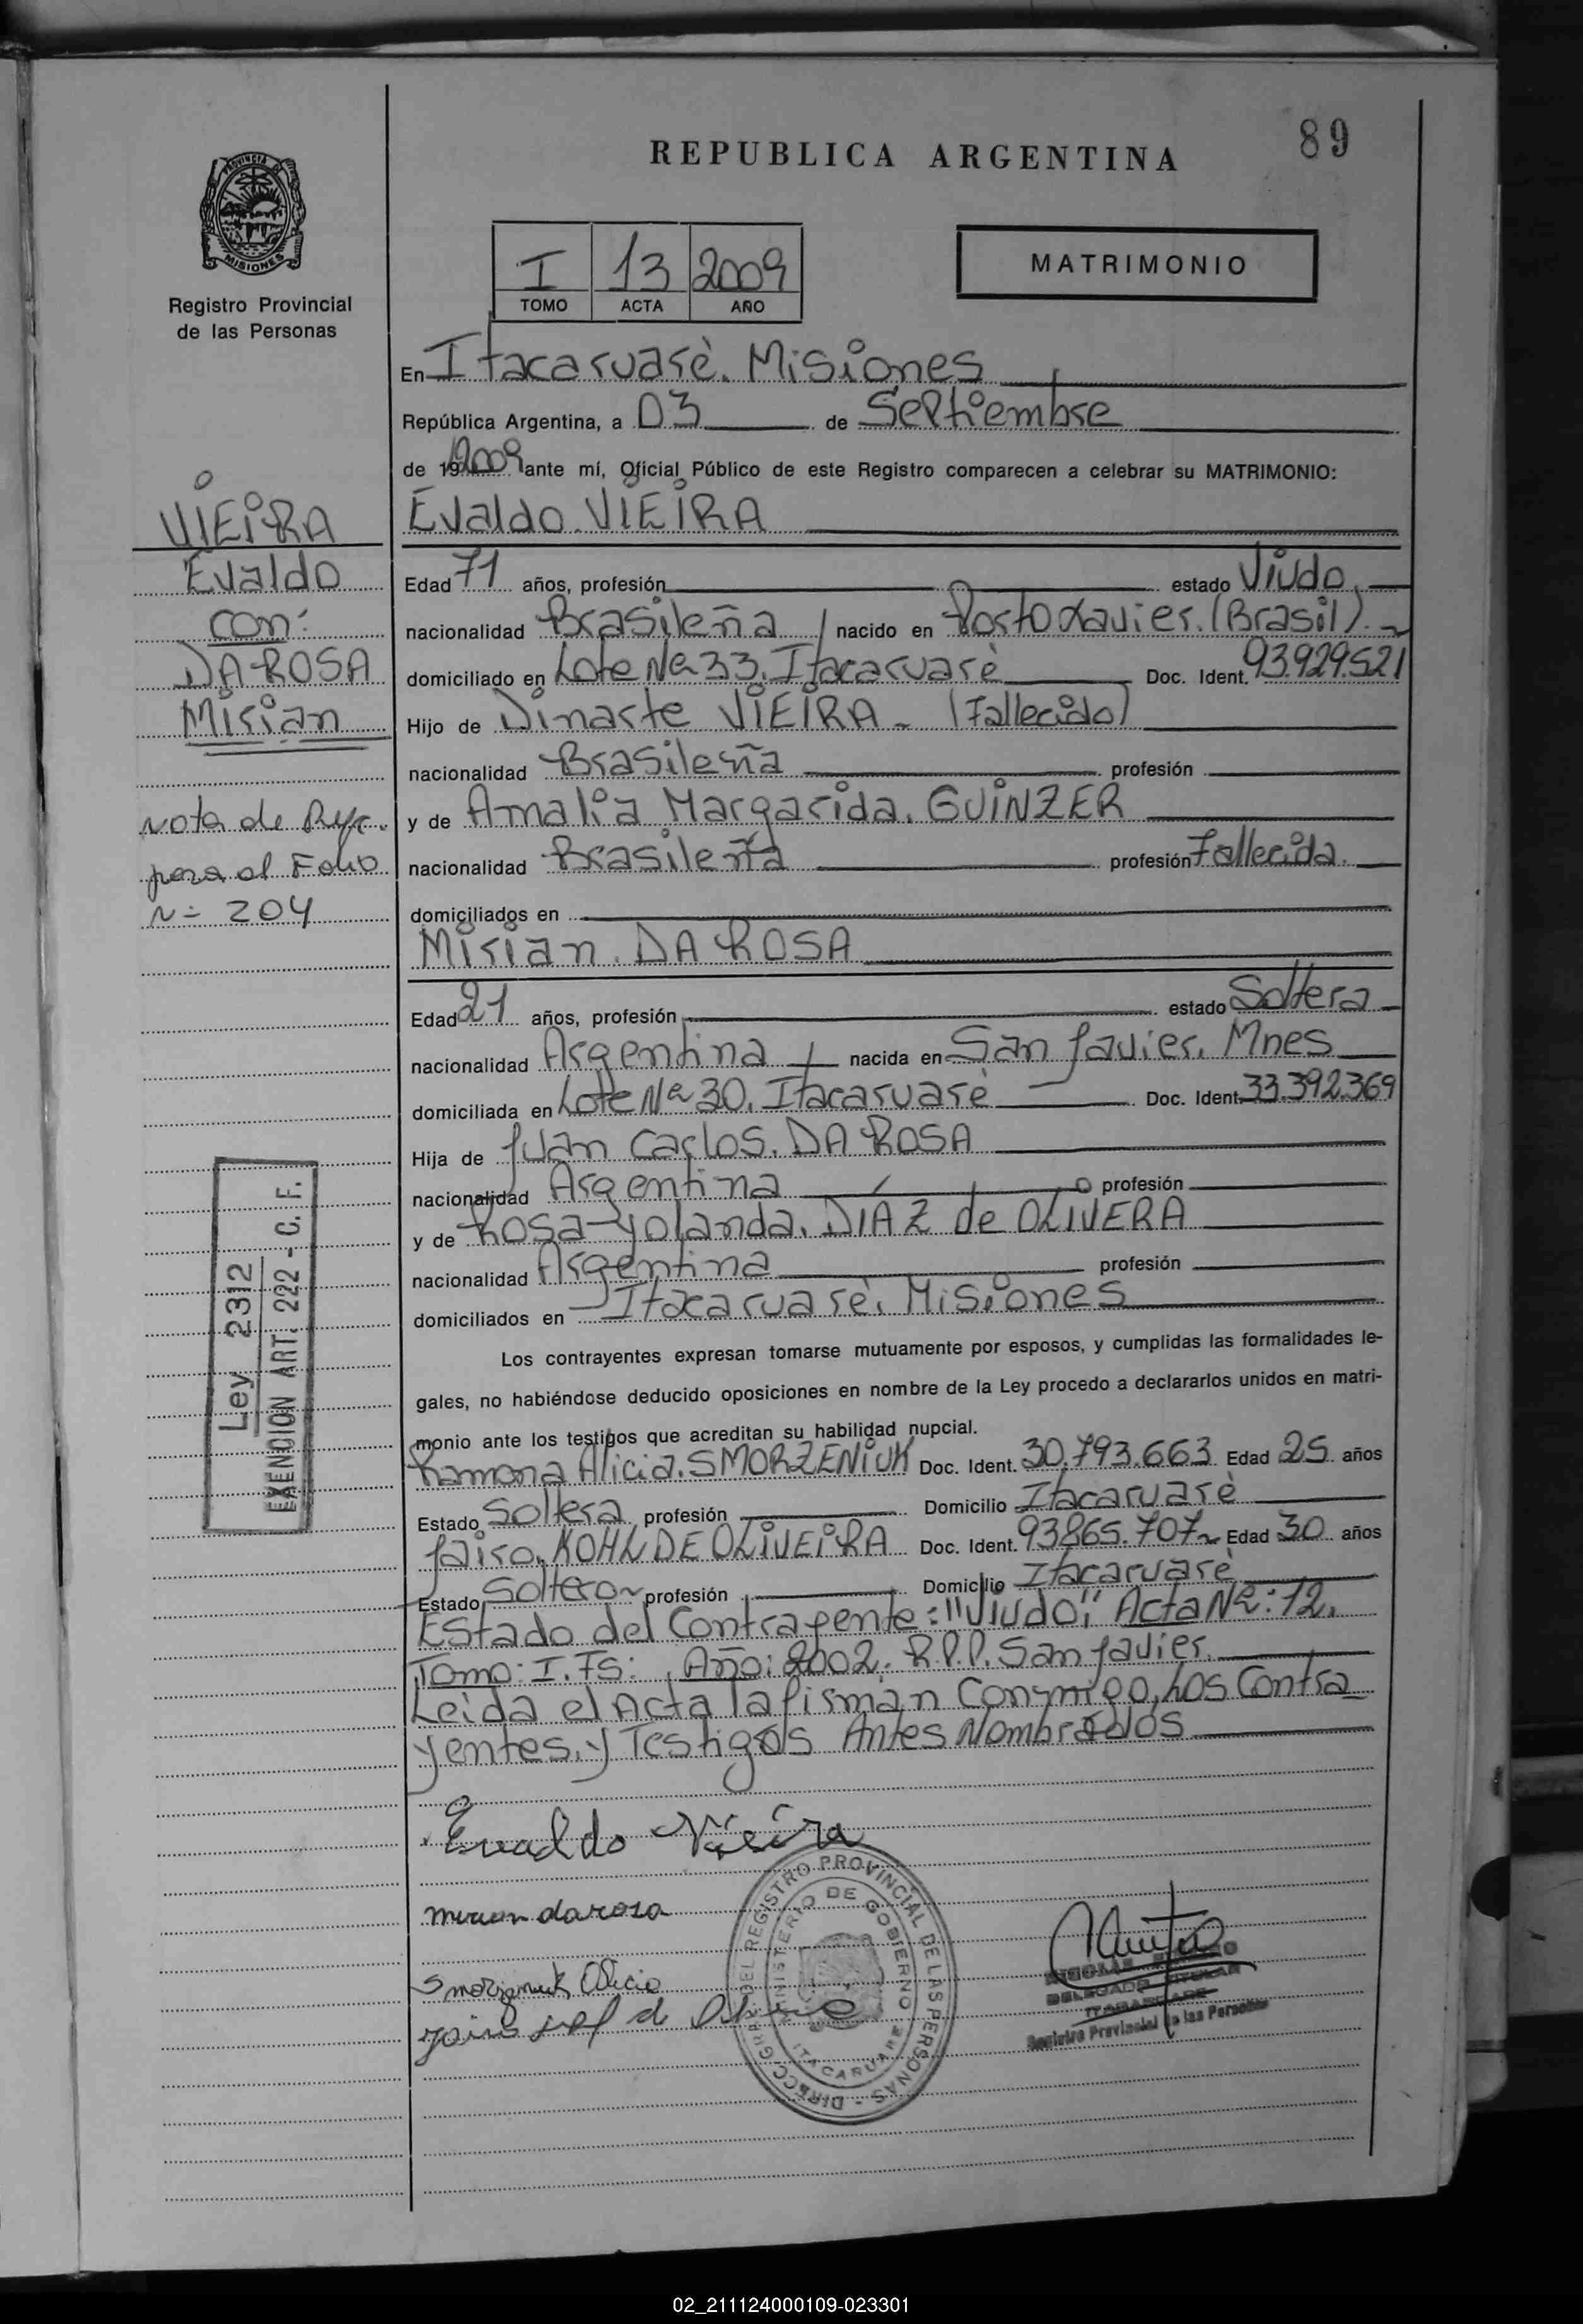 89
REPUBLICA ARGENTINA
PROVINCIA DE
MISIONES
Registro Provincial
de las Personas
I 13 2009
TOMO ACTA AÑO
MATRIMONIO
En Itacaruarè. Misiones
República Argentina, a 03 de Septiembre
de 19 2009 ante mí, Oficial Público de este Registro comparecen a celebrar su MATRIMONIO:
Evaldo VIEIRA
Edad 71 años, profesión estado Viudo.
nacionalidad Brasileña nacido en Porto Xavier. (Brasil).
domiciliado en Lote Nº 33. Itacaruarè Doc. Ident. 93.929.521
Hijo de Dinarte VIEIRA - (Fallecido)
nacionalidad Brasileña profesión
y de Amalia Margarida. GUINZER
nacionalidad Brasileña profesión Fallecida.
domiciliados en
Mirian. DA ROSA
Edad 21 años, profesión estado Soltera
nacionalidad Argentina nacida en San Javier. Mnes
domiciliada en Lote Nº 30. Itacaruarè Doc. Ident. 33.392.369
Hija de Juan Carlos. DA ROSA
nacionalidad Argentina profesión
y de Rosa Yolanda. DÍAZ de OLIVERA
nacionalidad Argentina profesión
domiciliados en Itacaruarè. Misiones
Los contrayentes expresan tomarse mutuamente por esposos, y cumplidas las formalidades le-
gales, no habiéndose deducido oposiciones en nombre de la Ley procedo a declararlos unidos en matri-
monio ante los testigos que acreditan su habilidad nupcial.
Ramona Alicia. SMORZENIUK Doc. Ident. 30.793.663 Edad 25 años
Estado Soltera profesión Domicilio Itacaruarè
Jairo. KOHL DE OLIVEIRA Doc. Ident. 93865.707 Edad 30 años
Estado Soltero profesión Domicilio Itacaruarè
Estado del Contrayente: "Viudo", Acta Nº: 12.
Tomo: I. Fs: , Año: 2002. R.P.P. San Javier.
Leida el Acta la firman Conmigo, Los Contra
yentes, y Testigos Antes Nombrados
Evaldo Vieira
mirian da rosa
Smorzeniuk Alicia
DIRECC. GRAL. DEL REGISTRO PROVINCIAL DE LAS PERSONAS
MINISTERIO DE GOBIERNO
ITACARUARE
DELEGADO TITULAR
ITACARUARE
Registro Provincial de las Personas
VIEIRA
Evaldo
con:
DA ROSA
Mirian
Nota de Ref.
pasa al Folio
Nº 204
Ley 2312
EXENCION ART. 222 - C. F.
02_211124000109-023301